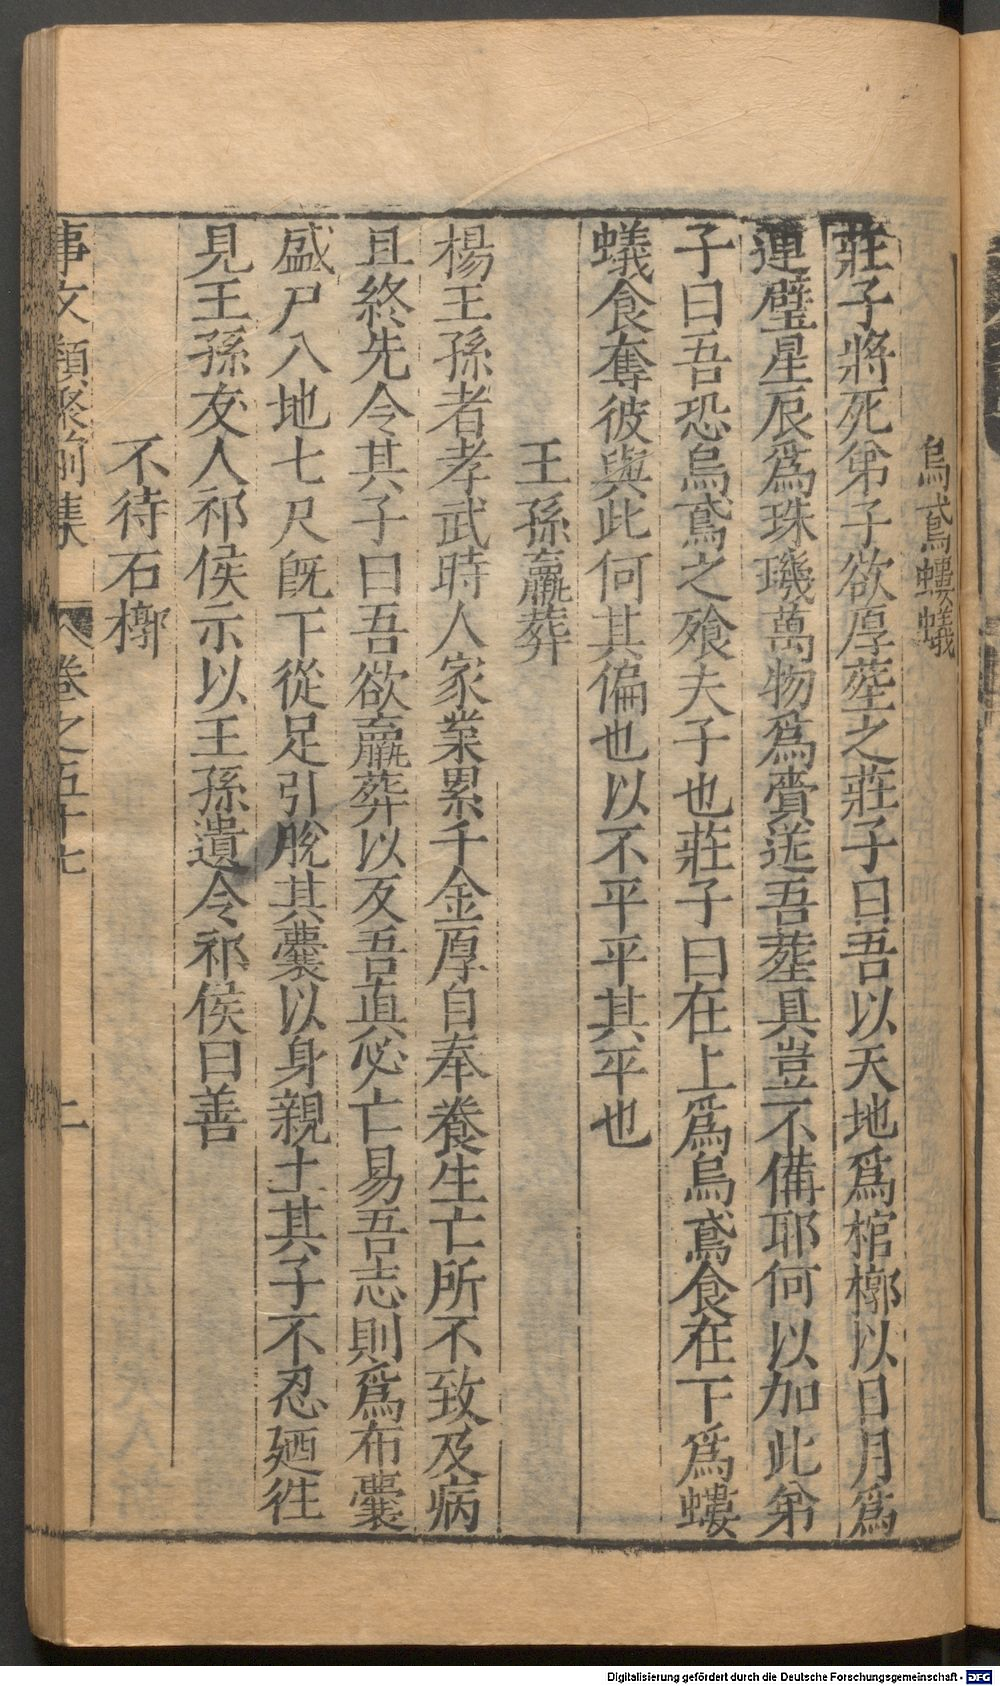 烏鳶螻蟻
莊子將死弟子欲厚塟之莊子曰吾以天地爲棺槨以日月爲
連璧星辰爲珠璣萬物爲賫送吾塟具豈不備耶何以加此弟
子曰吾恐烏鳶之飱夫子也莊子曰在上爲烏鳶食在下爲螻
蟻食奪彼與此何其偏也以不平平其平也
王孫臝葬
楊王孫者孝武時人家業累千金厚自奉養生亡所不致及病
且終先令其子曰吾欲臝葬以反吾真必亡易吾志則爲布囊
盛尸入地七尺旣下從足引脫其囊以身親土其子不忍廼往
見王孫友人祁侯示以王孫遺令祁侯曰善
不待石槨
事文類聚前集 卷之五十七 二
Digitalisierung gefördert durch die Deutsche Forschungsgemeinschaft - DFG